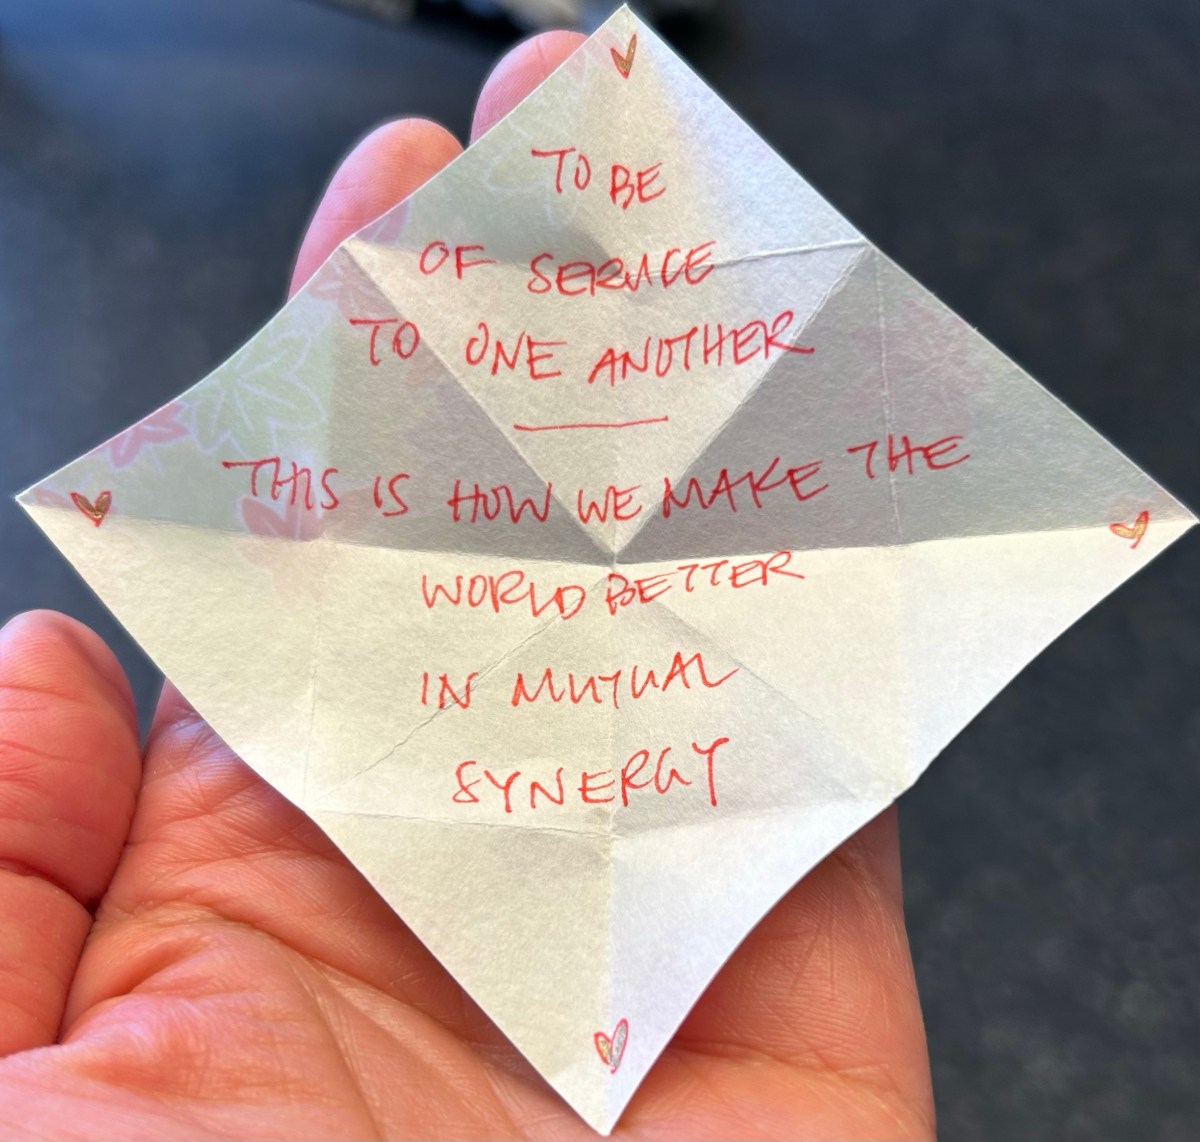 TO BE
OF SERVICE
TO ONE ANOTHER
THIS IS HOW WE MAKE THE
WORLD BETTER
IN MUTUAL
SYNERGY